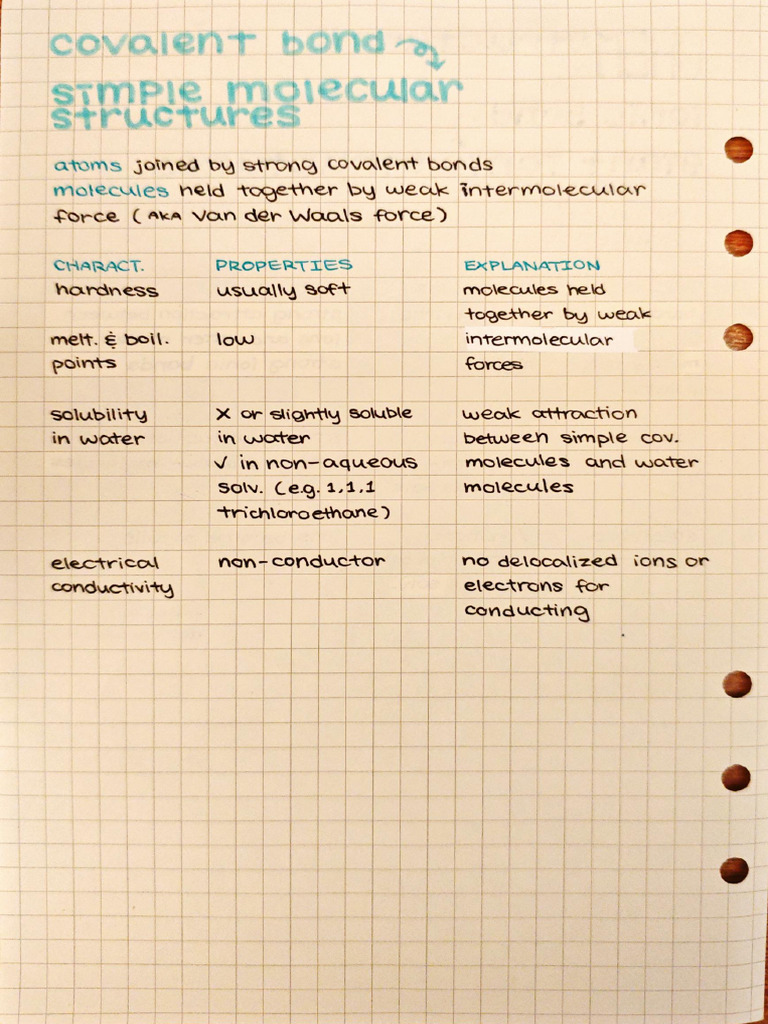 covalent bond
simple molecular
structures
atoms joined by strong covalent bonds
molecules held together by weak intermolecular
force (AKA Van der Waals force)
CHARACT. PROPERTIES EXPLANATION
hardness usually soft molecules held
together by weak
melt. & boil. low intermolecular
points forces
solubility X or slightly soluble weak attraction
in water in water between simple cov.
✓ in non-aqueous molecules and water
solv. (e.g. 1,1,1 molecules
trichloroethane)
electrical non-conductor no delocalized ions or
conductivity electrons for
conducting